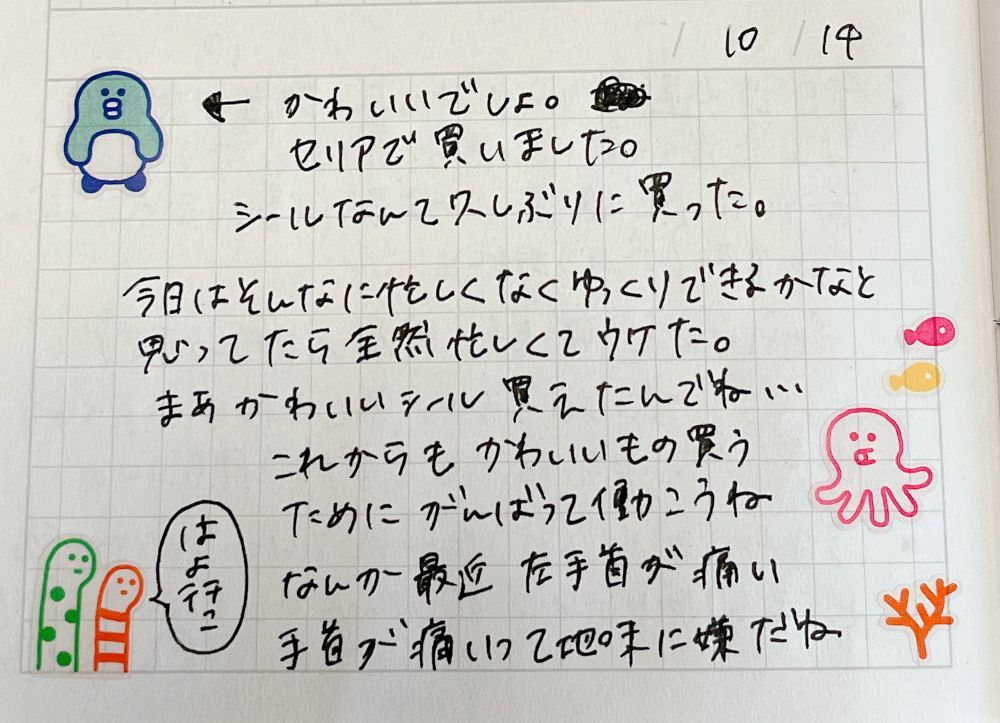 / 10 / 14
← かわいいでしょ。
セリアで買いました。
シールなんて久しぶりに買った。
今日はそんなに忙しくなくゆっくりできるかなと
思ってたら全然忙しくてウケた。
まあかわいいシール買えたんでね…
これからもかわいいもの買う
ためにがんばって働こうね
なんか最近左手首が痛い
手首が痛いって地味に嫌だね
はよ